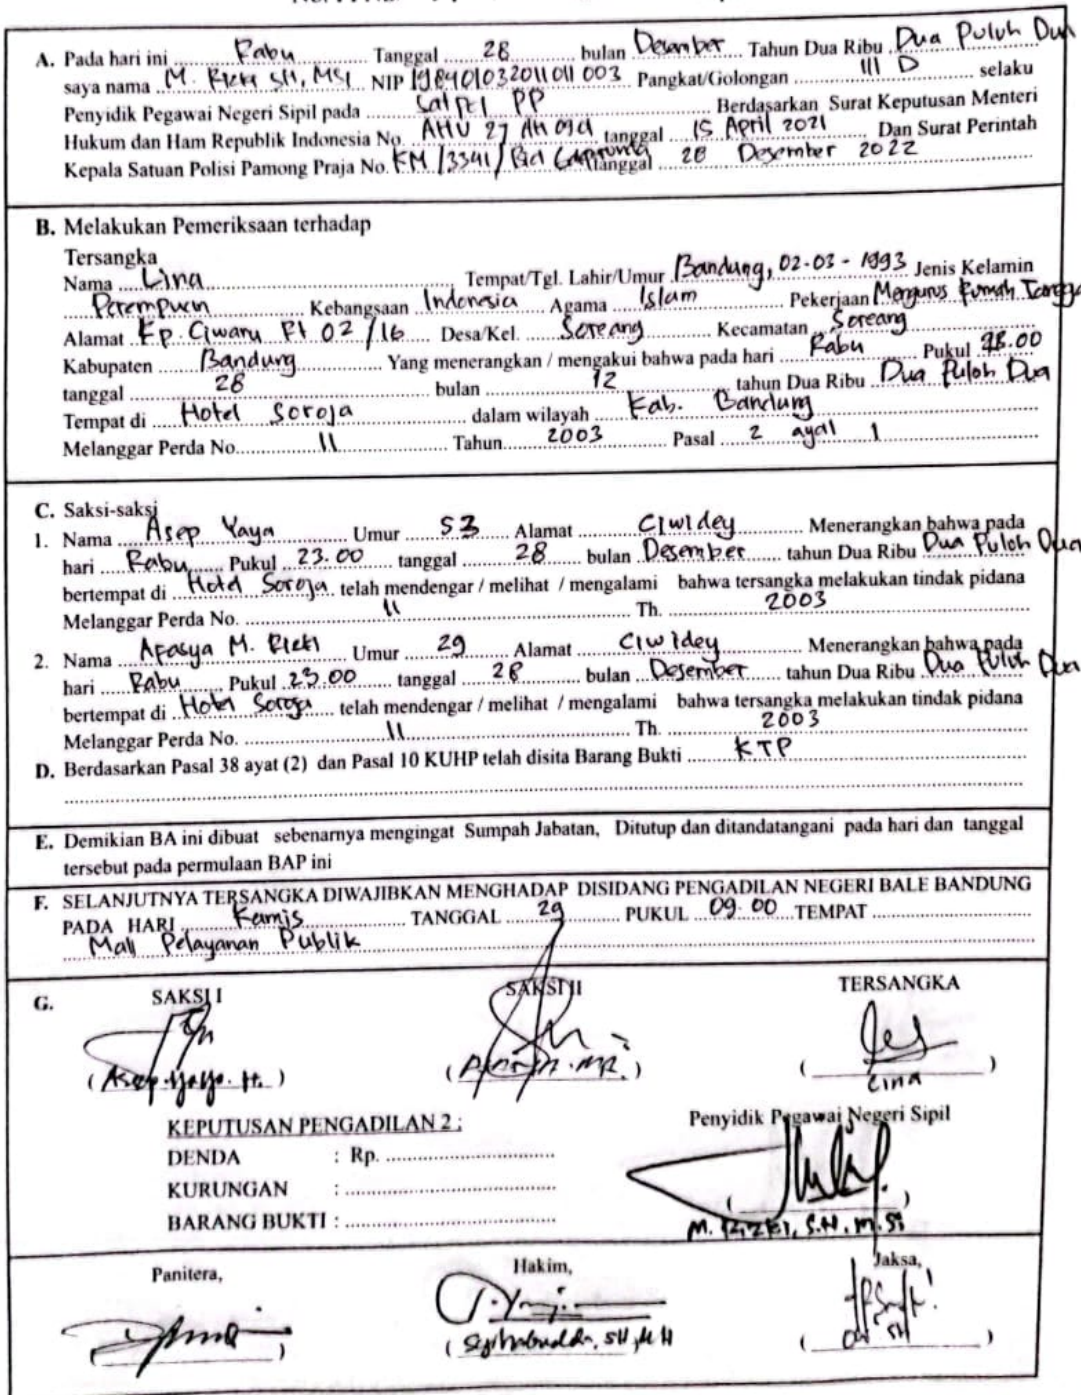 A. Pada hari ini Rabu Tanggal 28 bulan Desember Tahun Dua Ribu Dua Puluh Dua
saya nama M. Rizki SH, MSi NIP 198401032011011 003 Pangkat/Golongan III D selaku
Penyidik Pegawai Negeri Sipil pada Satpol PP Berdasarkan Surat Keputusan Menteri
Hukum dan Ham Republik Indonesia No. AHU 27 AH 09 01 tanggal 15 April 2021 Dan Surat Perintah
Kepala Satuan Polisi Pamong Praja No. KM /3341/ tanggal 28 Desember 2022
B. Melakukan Pemeriksaan terhadap
Tersangka
Nama Lina Tempat/Tgl. Lahir/Umur Bandung, 02-03-1993 Jenis Kelamin
Perempuan Kebangsaan Indonesia Agama Islam Pekerjaan Mengurus Rumah Tangga
Alamat Kp. Ciwaru Rt 02/16 Desa/Kel. Soreang Kecamatan Soreang
Kabupaten Bandung Yang menerangkan / mengakui bahwa pada hari Rabu Pukul
tanggal 28 bulan 12 tahun Dua Ribu Dua Puloh Dua
Tempat di Hotel Soroja dalam wilayah Kab. Bandung
Melanggar Perda No. 11 Tahun 2003 Pasal 2 ayat 1
C. Saksi-saksi
1. Nama Asep Yaya Umur 53 Alamat Ciwidey Menerangkan bahwa pada
hari Rabu Pukul 23.00 tanggal 28 bulan Desember tahun Dua Ribu Dua Puloh Dua
bertempat di Hotel Soroja telah mendengar / melihat / mengalami bahwa tersangka melakukan tindak pidana
Melanggar Perda No. 11 Th. 2003
2. Nama M. Rizki Umur 29 Alamat Ciwidey Menerangkan bahwa pada
hari Rabu Pukul 23.00 tanggal 28 bulan Desember tahun Dua Ribu Dua Puluh Dua
bertempat di Hotel Soroja telah mendengar / melihat / mengalami bahwa tersangka melakukan tindak pidana
Melanggar Perda No. 11 Th. 2003
D. Berdasarkan Pasal 38 ayat (2) dan Pasal 10 KUHP telah disita Barang Bukti KTP
E. Demikian BA ini dibuat sebenarnya mengingat Sumpah Jabatan, Ditutup dan ditandatangani pada hari dan tanggal
tersebut pada permulaan BAP ini
F. SELANJUTNYA TERSANGKA DIWAJIBKAN MENGHADAP DISIDANG PENGADILAN NEGERI BALE BANDUNG
PADA HARI Kamis TANGGAL 29 PUKUL 09.00 TEMPAT
Mall Pelayanan Publik
G. SAKSI I SAKSI II TERSANGKA
(Asep Yaya. H.) ( ) (Lina)
KEPUTUSAN PENGADILAN 2 : Penyidik Pegawai Negeri Sipil
DENDA : Rp.
KURUNGAN :
BARANG BUKTI :
M. RIZKI, S.H. M.Si
Panitera, Hakim, Jaksa,